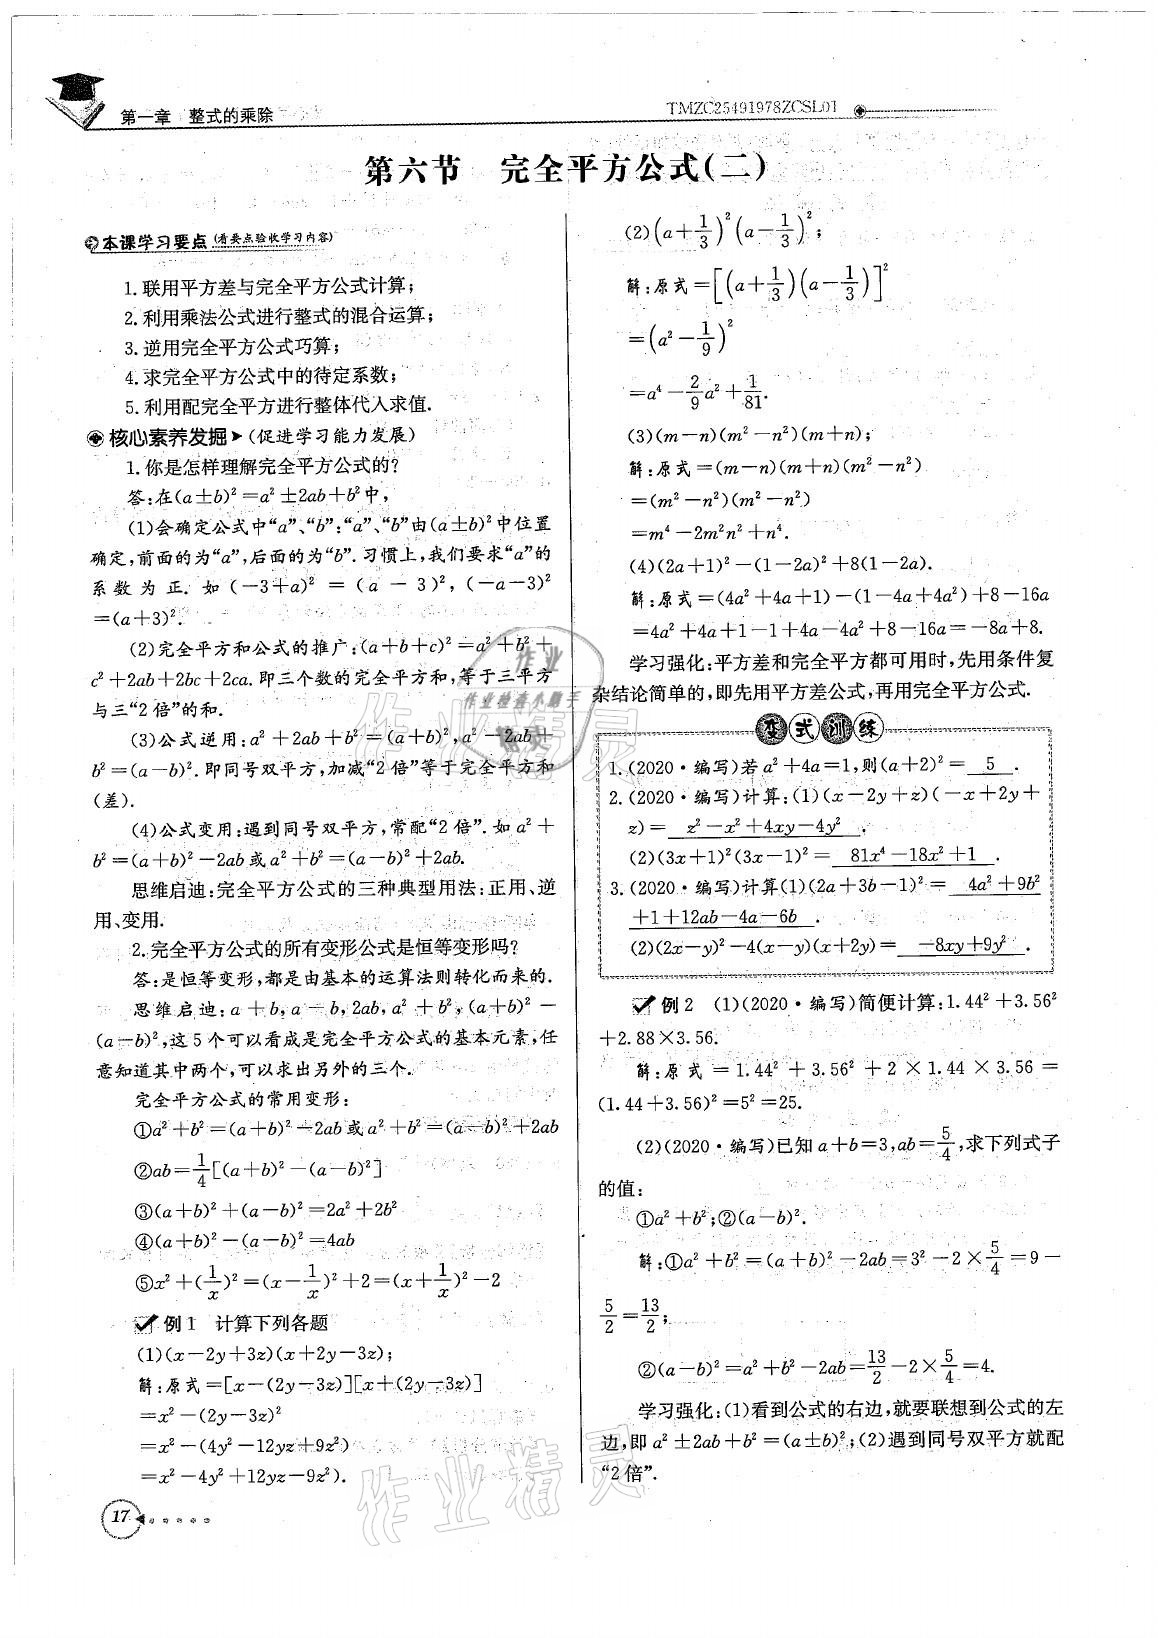 第一章　整式的乘除
TMZC25491978ZCSL01
第六节　完全平方公式(二)
本课学习要点(看要点验收学习内容)
1.联用平方差与完全平方公式计算;
2.利用乘法公式进行整式的混合运算;
3.逆用完全平方公式巧算;
4.求完全平方公式中的待定系数;
5.利用配完全平方进行整体代入求值.
核心素养发掘➤(促进学习能力发展)
1.你是怎样理解完全平方公式的?
答:在(a±b)²=a²±2ab+b²中,
(1)会确定公式中“a”、“b”:“a”、“b”由(a±b)²中位置
确定,前面的为“a”,后面的为“b”.习惯上,我们要求“a”的
系数为正.如(-3+a)²=(a-3)²,(-a-3)²
=(a+3)².
(2)完全平方和公式的推广:(a+b+c)²=a²+b²+
c²+2ab+2bc+2ca.即三个数的完全平方和,等于三平方
与三“2倍”的和.
(3)公式逆用:a²+2ab+b²=(a+b)²,a²-2ab+
b²=(a-b)².即同号双平方,加减“2倍”等于完全平方和
(差).
(4)公式变用:遇到同号双平方,常配“2倍”.如a²+
b²=(a+b)²-2ab或a²+b²=(a-b)²+2ab.
思维启迪:完全平方公式的三种典型用法:正用、逆
用、变用.
2.完全平方公式的所有变形公式是恒等变形吗?
答:是恒等变形,都是由基本的运算法则转化而来的.
思维启迪:a+b,a-b,2ab,a²+b²,(a+b)²-
(a-b)²,这5个可以看成是完全平方公式的基本元素,任
意知道其中两个,可以求出另外的三个.
完全平方公式的常用变形:
①a²+b²=(a+b)²-2ab或a²+b²=(a-b)²+2ab
②ab=1/4[(a+b)²-(a-b)²]
③(a+b)²+(a-b)²=2a²+2b²
④(a+b)²-(a-b)²=4ab
⑤x²+(1/x)²=(x-1/x)²+2=(x+1/x)²-2
例1　计算下列各题
(1)(x-2y+3z)(x+2y-3z);
解:原式=[x-(2y-3z)][x+(2y-3z)]
=x²-(2y-3z)²
=x²-(4y²-12yz+9z²)
=x²-4y²+12yz-9z²).
17
(2)(a+1/3)²(a-1/3)²;
解:原式=[(a+1/3)(a-1/3)]²
=(a²-1/9)²
=a⁴-2/9a²+1/81.
(3)(m-n)(m²-n²)(m+n);
解:原式=(m-n)(m+n)(m²-n²)
=(m²-n²)(m²-n²)
=m⁴-2m²n²+n⁴.
(4)(2a+1)²-(1-2a)²+8(1-2a).
解:原式=(4a²+4a+1)-(1-4a+4a²)+8-16a
=4a²+4a+1-1+4a-4a²+8-16a=-8a+8.
学习强化:平方差和完全平方都可用时,先用条件复
杂结论简单的,即先用平方差公式,再用完全平方公式.
变式训练
1.(2020·编写)若a²+4a=1,则(a+2)²=　5　.
2.(2020·编写)计算:(1)(x-2y+z)(-x+2y+
z)=　z²-x²+4xy-4y²　.
(2)(3x+1)²(3x-1)²=　81x⁴-18x²+1　.
3.(2020·编写)计算(1)(2a+3b-1)²=　4a²+9b²
+1+12ab-4a-6b　.
(2)(2x-y)²-4(x-y)(x+2y)=　-8xy+9y²　.
例2　(1)(2020·编写)简便计算:1.44²+3.56²
+2.88×3.56.
解:原式=1.44²+3.56²+2×1.44×3.56=
(1.44+3.56)²=5²=25.
(2)(2020·编写)已知a+b=3,ab=5/4,求下列式子
的值:
①a²+b²;②(a-b)².
解:①a²+b²=(a+b)²-2ab=3²-2×5/4=9-
5/2=13/2;
②(a-b)²=a²+b²-2ab=13/2-2×5/4=4.
学习强化:(1)看到公式的右边,就要联想到公式的左
边,即a²±2ab+b²=(a±b)²;(2)遇到同号双平方就配
“2倍”.
作业精灵
作业
作业检查小助手
作业精灵